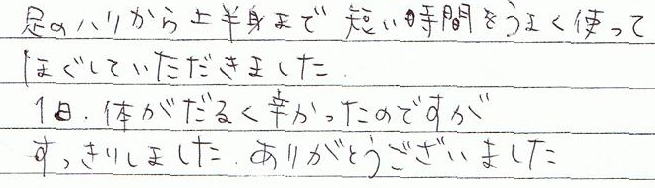 足のハリから上半身まで 短い時間をうまく使って
ほぐしていただきました.
1日.体がだるく辛かったのですが
すっきりしました.ありがとうございました